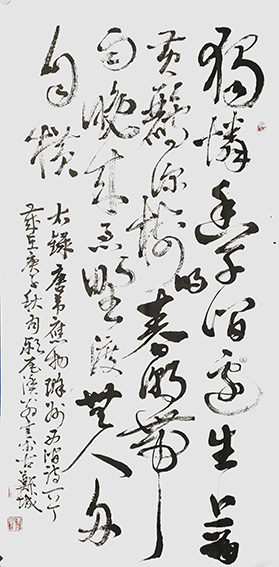 獨憐幽草澗邊生上有
黃鸝深樹鳴春潮帶
雨晚來急野渡無人舟
自橫
右錄唐韋應物滁州西澗詩一首
歲在庚子秋月 鄭城